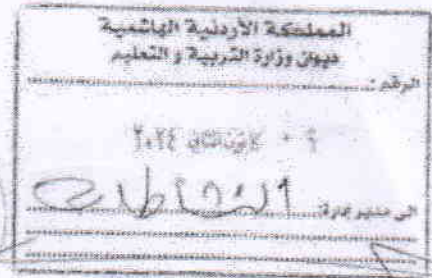 المملكة الأردنية الهاشمية
ديوان وزارة التربية و التعليم
الرقم :
كانون الثاني ٢٠٢٤
الى مدير إدارة النشاطات